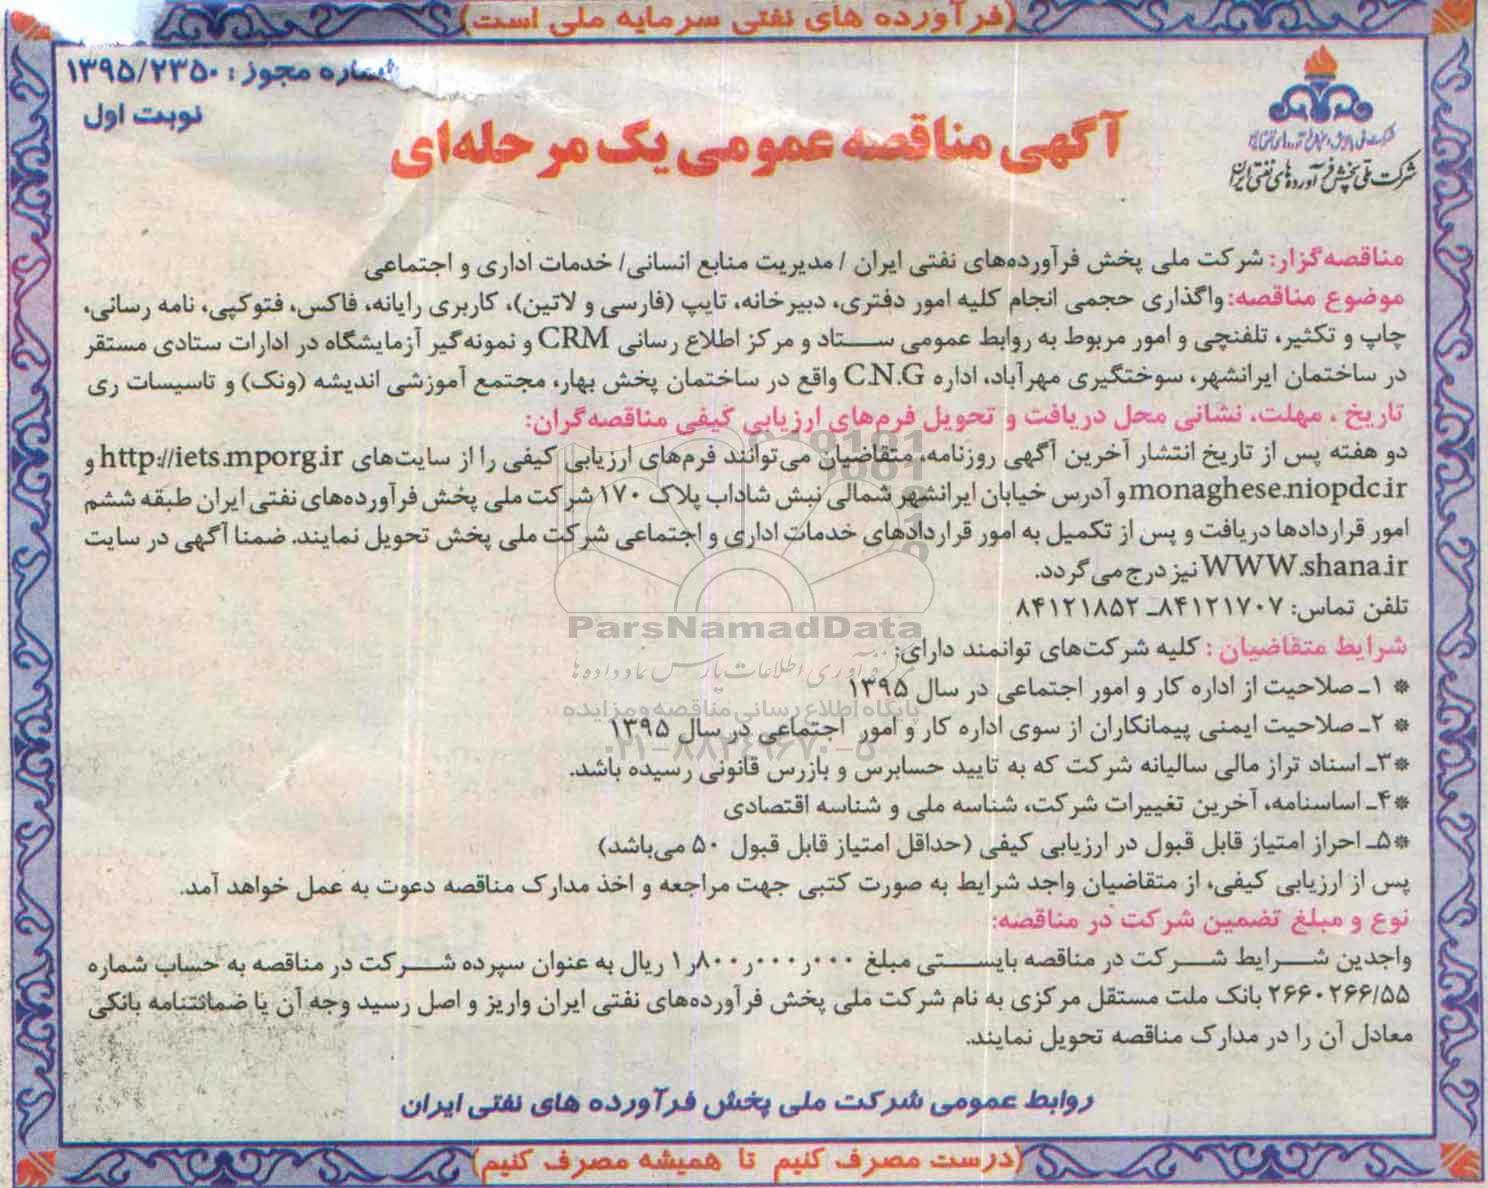 (فرآورده های نفتی سرمایه ملی است)
شماره مجوز : ۱۳۹۵/۲۳۵۰
نوبت اول
شرکت ملی پخش فرآورده‌های نفتی ایران
آگهی مناقصه عمومی یک مرحله‌ای
مناقصه‌گزار: شرکت ملی پخش فرآورده‌های نفتی ایران / مدیریت منابع انسانی/ خدمات اداری و اجتماعی
موضوع مناقصه: واگذاری حجمی انجام کلیه امور دفتری، دبیرخانه، تایپ (فارسی و لاتین)، کاربری رایانه، فاکس، فتوکپی، نامه رسانی،
چاپ و تکثیر، تلفنچی و امور مربوط به روابط عمومی ستاد و مرکز اطلاع رسانی CRM و نمونه‌گیر آزمایشگاه در ادارات ستادی مستقر
در ساختمان ایرانشهر، سوختگیری مهرآباد، اداره C.N.G واقع در ساختمان پخش بهار، مجتمع آموزشی اندیشه (ونک) و تاسیسات ری
تاریخ ، مهلت، نشانی محل دریافت و تحویل فرم‌های ارزیابی کیفی مناقصه‌گران:
دو هفته پس از تاریخ انتشار آخرین آگهی روزنامه، متقاضیان می‌توانند فرم‌های ارزیابی کیفی را از سایت‌های http://iets.mporg.ir و
monaghese.niopdc.ir و آدرس خیابان ایرانشهر شمالی نبش شاداب پلاک ۱۷۰ شرکت ملی پخش فرآورده‌های نفتی ایران طبقه ششم
امور قراردادها دریافت و پس از تکمیل به امور قراردادهای خدمات اداری و اجتماعی شرکت ملی پخش تحویل نمایند. ضمنا آگهی در سایت
WWW.shana.ir نیز درج می‌گردد.
تلفن تماس: ۸۴۱۲۱۷۰۷ـ ۸۴۱۲۱۸۵۲
ParsNamadData
شرایط متقاضیان : کلیه شرکت‌های توانمند دارای:
مرکز فرآوری اطلاعات پارس نماد داده‌ها
* ۱ـ صلاحیت از اداره کار و امور اجتماعی در سال ۱۳۹۵
پایگاه اطلاع رسانی مناقصه و مزایده
* ۲ـ صلاحیت ایمنی پیمانکاران از سوی اداره کار و امور اجتماعی در سال ۱۳۹۵
۰۲۱-۸۸۳۴۹۶۷۰-۵
*۳ـ اسناد تراز مالی سالیانه شرکت که به تایید حسابرس و بازرس قانونی رسیده باشد.
*۴ـ اساسنامه، آخرین تغییرات شرکت، شناسه ملی و شناسه اقتصادی
*۵ـ احراز امتیاز قابل قبول در ارزیابی کیفی (حداقل امتیاز قابل قبول ۵۰ می‌باشد)
پس از ارزیابی کیفی، از متقاضیان واجد شرایط به صورت کتبی جهت مراجعه و اخذ مدارک مناقصه دعوت به عمل خواهد آمد.
نوع و مبلغ تضمین شرکت در مناقصه:
واجدین شرایط شرکت در مناقصه بایستی مبلغ ۱٫۸۰۰٫۰۰۰٫۰۰۰ ریال به عنوان سپرده شرکت در مناقصه به حساب شماره
۲۶۶۰۲۶۶/۵۵ بانک ملت مستقل مرکزی به نام شرکت ملی پخش فرآورده‌های نفتی ایران واریز و اصل رسید وجه آن یا ضمانتنامه بانکی
معادل آن را در مدارک مناقصه تحویل نمایند.
روابط عمومی شرکت ملی پخش فرآورده های نفتی ایران
(درست مصرف کنیم تا همیشه مصرف کنیم)